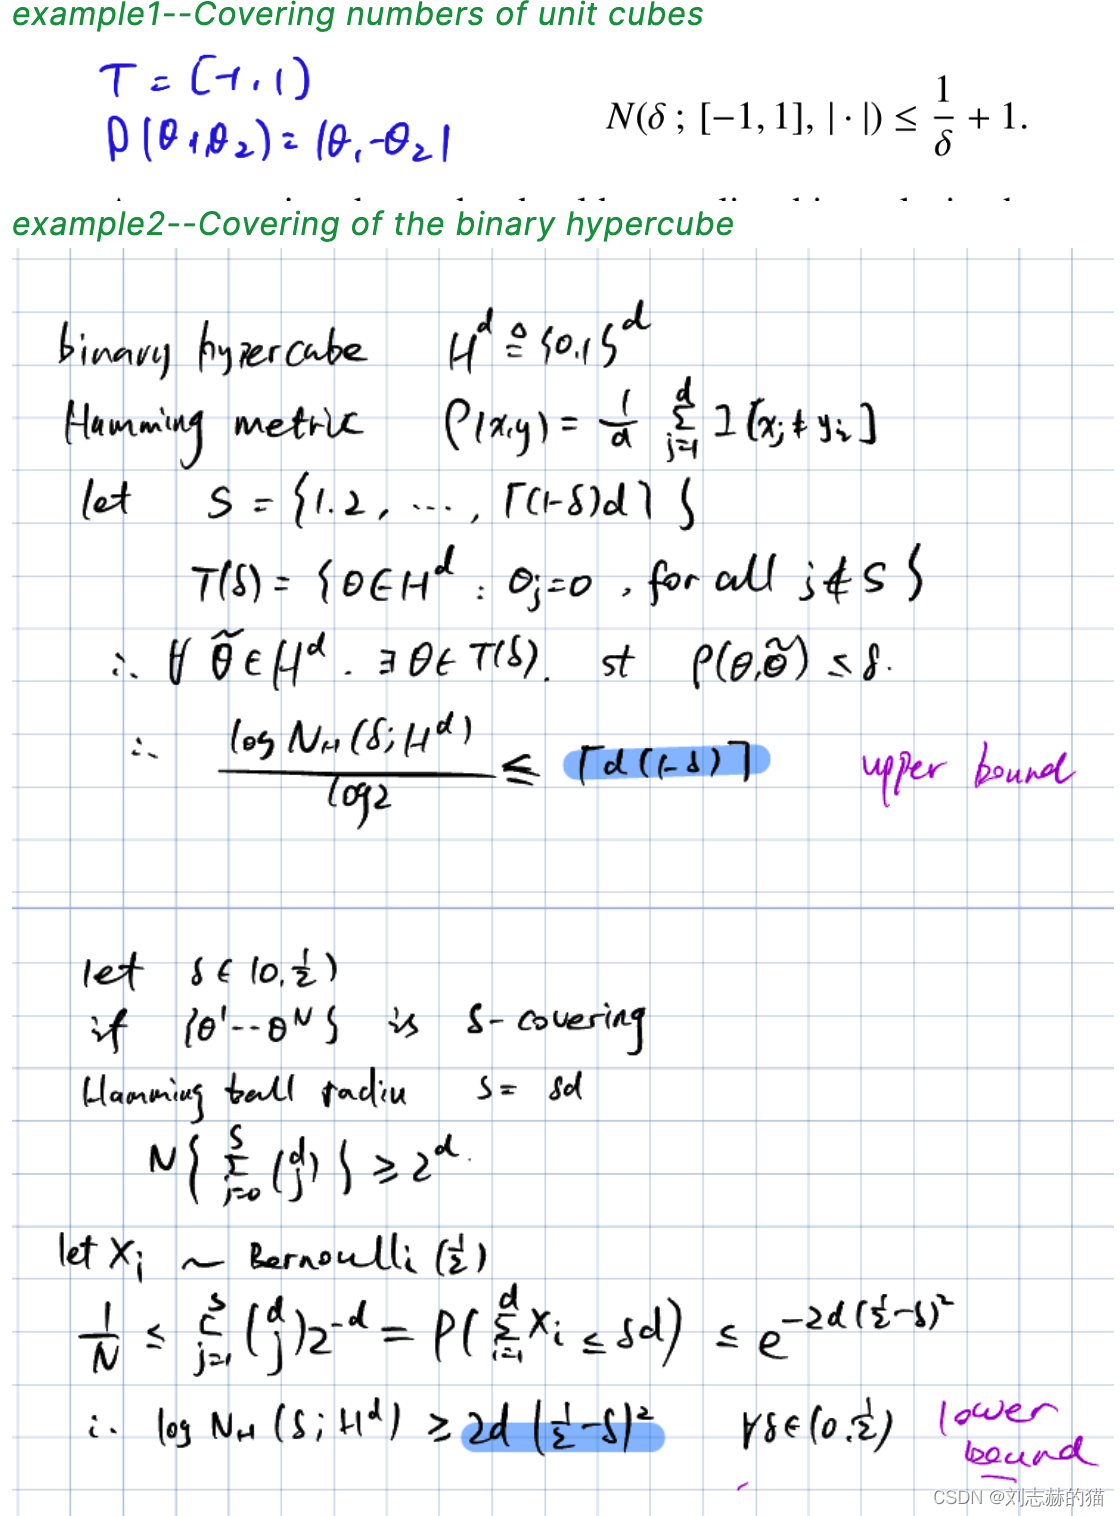 example1--Covering numbers of unit cubes
T = [-1, 1]
N(δ ; [−1, 1], | · |) ≤ 1/δ + 1.
ρ(θ1, θ2) = |θ1 - θ2|
example2--Covering of the binary hypercube
binary hypercube H^d ≜ {0,1}^d
Hamming metric ρ(x,y) = 1/d Σ_{j=1}^d I[x_j ≠ y_i]
let S = {1.2, ..., ⌈(1-δ)d⌉ }
T(δ) = {θ∈H^d : θ_j=0 , for all j∉S }
∴ ∀ θ̃ ∈ H^d . ∃ θ ∈ T(δ). st ρ(θ,θ̃) ≤ δ.
∴ log N_H (δ; H^d) / log2 ≤ ⌈d(1-δ)⌉ upper bound
let δ ∈ (0, 1/2)
if {θ^1 -- θ^N} is δ-covering
Hamming ball radiu s = δd
N { Σ_{j=0}^s (d j) } ≥ 2^d.
let X_i ~ Bernoulli (1/2)
1/N ≤ Σ_{j=1}^s (d j) 2^{-d} = P( Σ_{i=1}^d X_i ≤ δd) ≤ e^{-2d(1/2-δ)^2}
∴ log N_H (δ; H^d) ≥ 2d (1/2-δ)^2 ∀δ∈(0.1/2) lower
bound
CSDN @刘志赫的猫